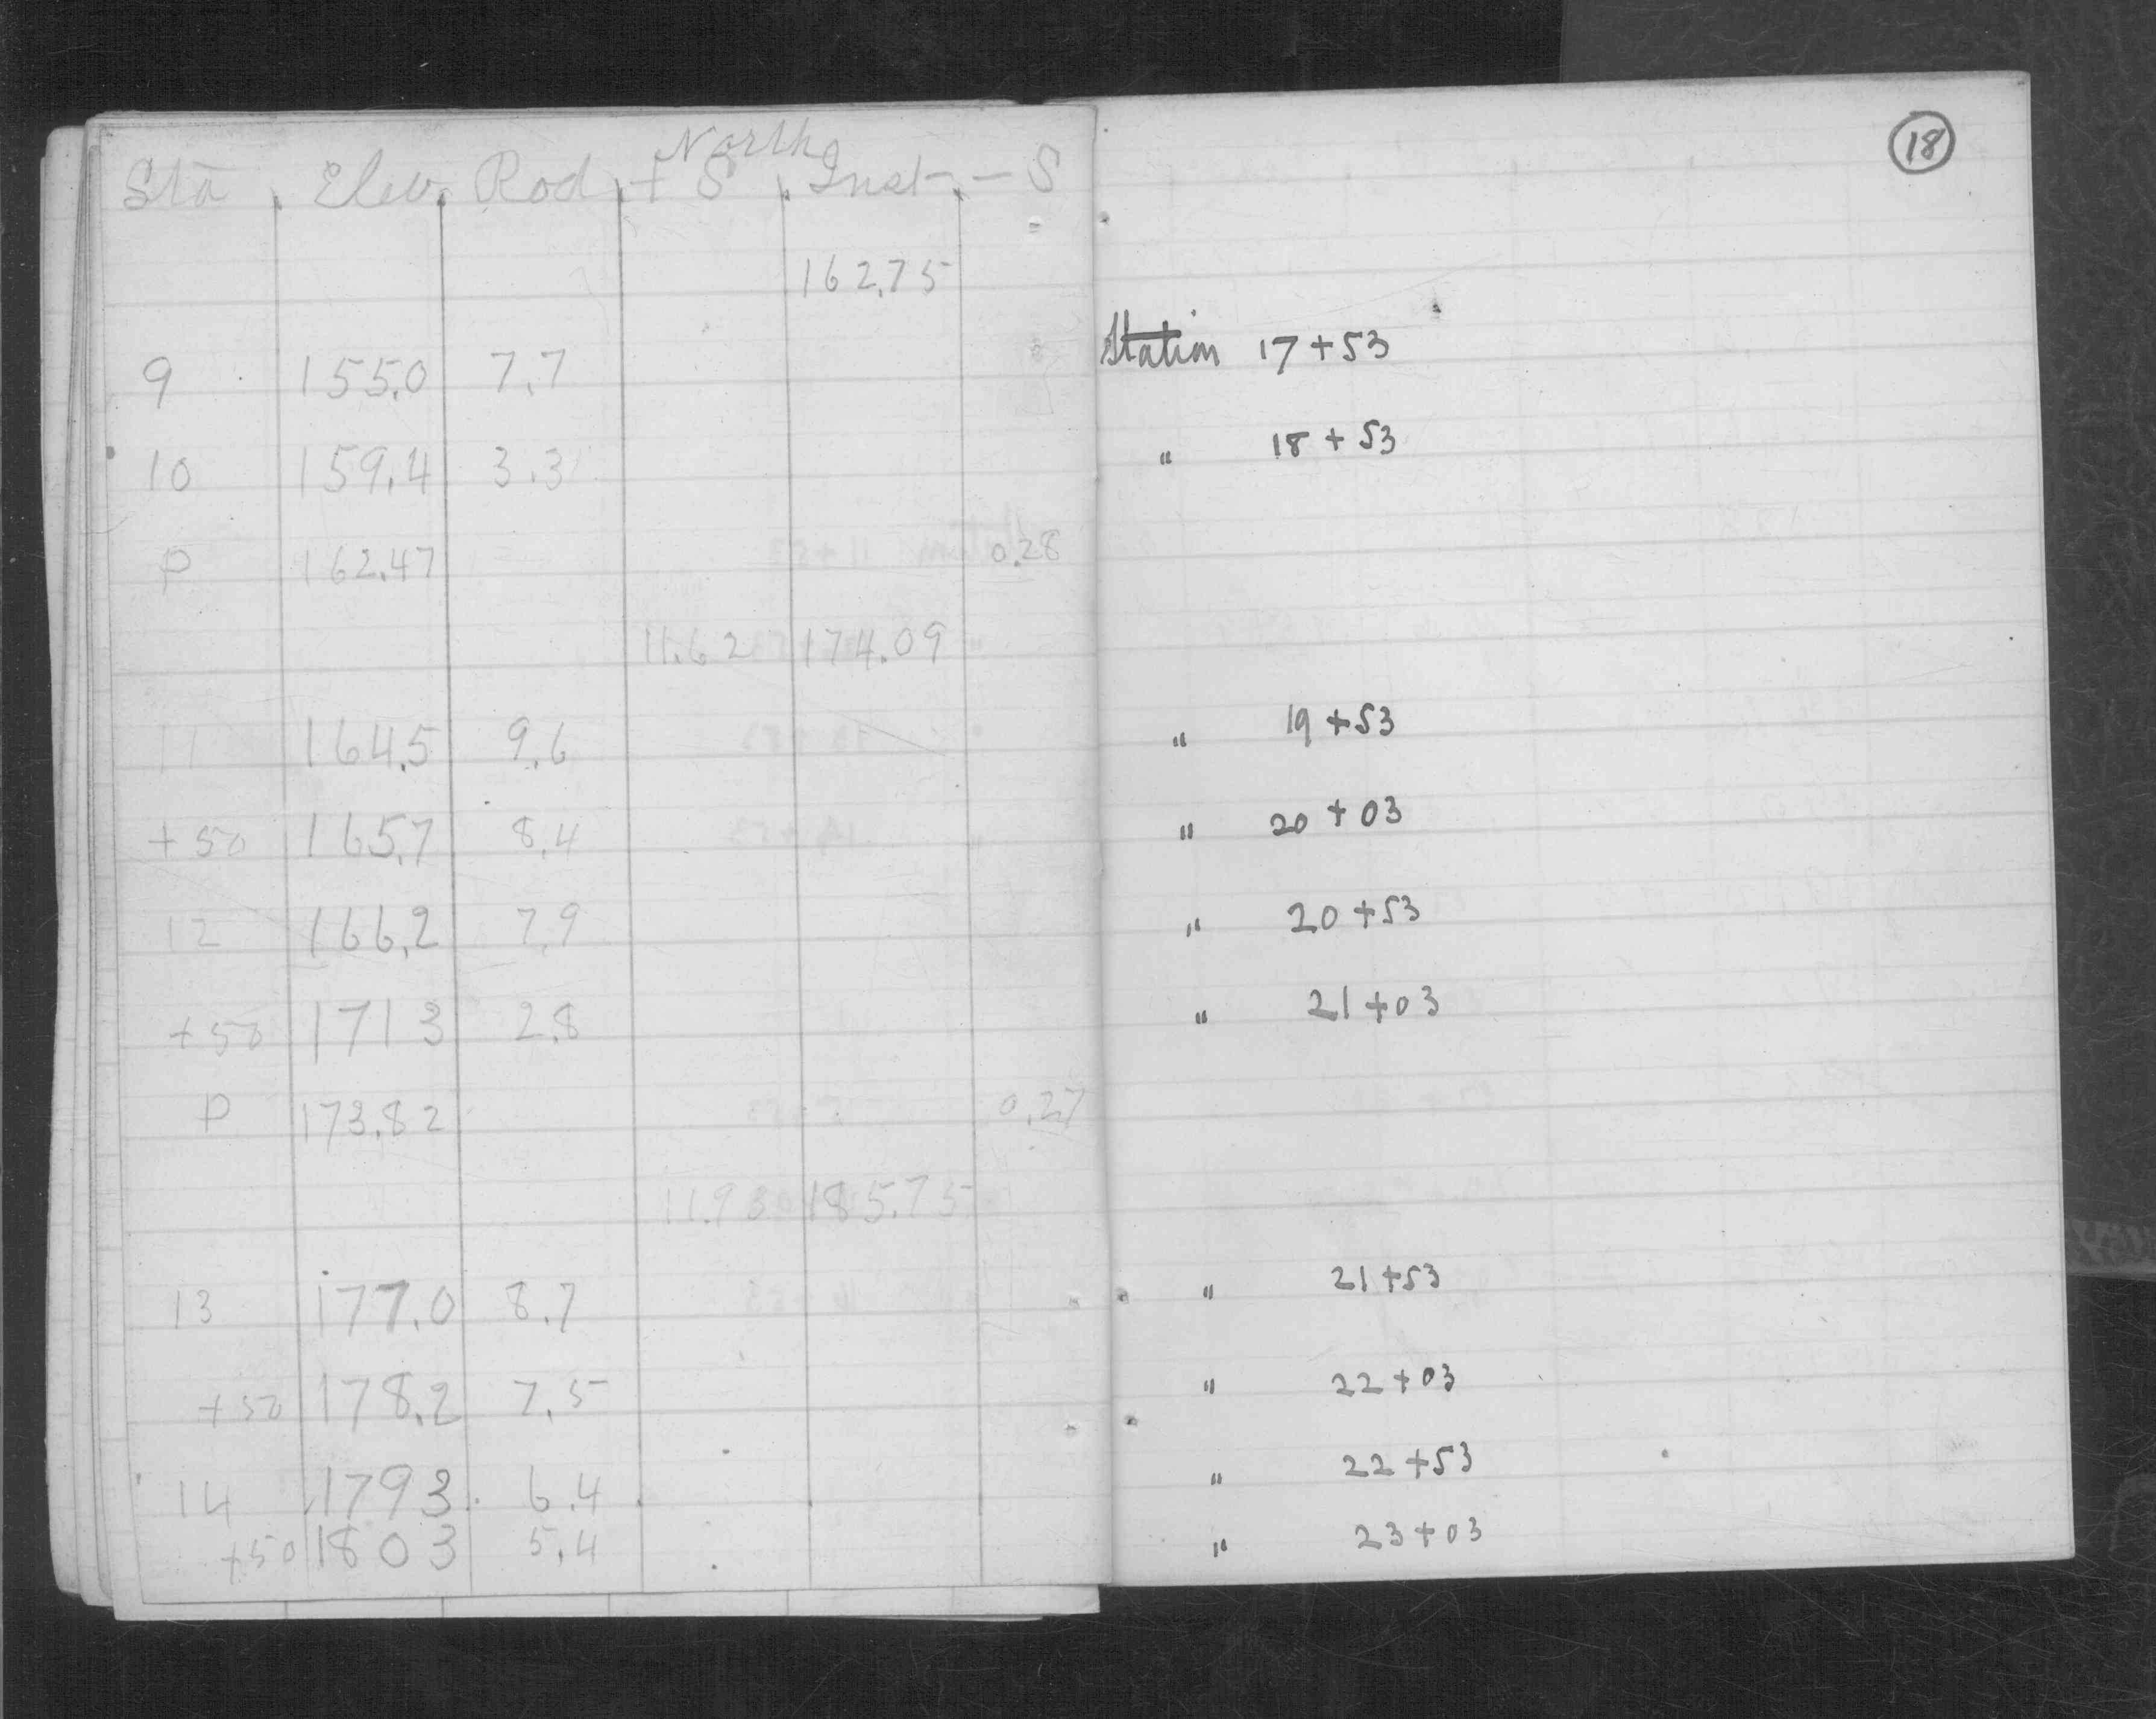 North
Sta Elev. Rod + S Inst - S
18
162.75
9 155.0 7.7 Station 17+53
10 159.4 3.3 " 18+53
P 162.47 0.28
11.62 174.09
11 164.5 9.6 " 19+53
+50 165.7 8.4 " 20+03
12 166.2 7.9 " 20+53
+50 171 3 2.8 " 21+03
P 173.82 0.27
11.93 185.75
13 177.0 8.7 " 21+53
+50 178.2 7.5 " 22+03
14 179 3 6.4 " 22+53
+50 180 3 5.4 " 23+03